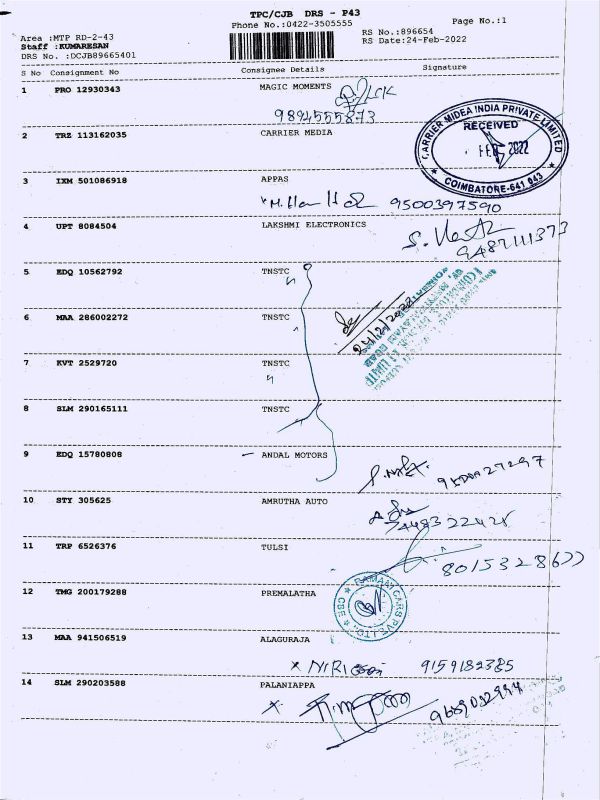 TPC/CJB DRS - P43
Phone No.:0422-3505555
Page No.:1
Area :MTP RD-2-43
Staff :KUMARESAN
DRS No. :DCJB89665401
RS No.:896654
RS Date:24-Feb-2022
S No Consignment No Consignee Details Signature
1 PRO 12930343 MAGIC MOMENTS
9894555873
2 TRZ 113162035 CARRIER MEDIA
CARRIER MIDEA INDIA PRIVATE LIMITED
RECEIVED
FEB 2022
COIMBATORE-641 043
3 IXM 501086918 APPAS
9500397590
4 UPT 8084504 LAKSHMI ELECTRONICS
9487111373
5 EDQ 10562792 TNSTC
24/2/2022
6 MAA 286002272 TNSTC
7 KVT 2529720 TNSTC
8 SLM 290165111 TNSTC
9 EDQ 15780808 ANDAL MOTORS
10 STY 305625 AMRUTHA AUTO
11 TRP 6526376 TULSI
12 TMG 200179288 PREMALATHA
RAMANI CARS PVT LTD. CBE
13 MAA 941506519 ALAGURAJA
9159182385
14 SLM 290203588 PALANIAPPA